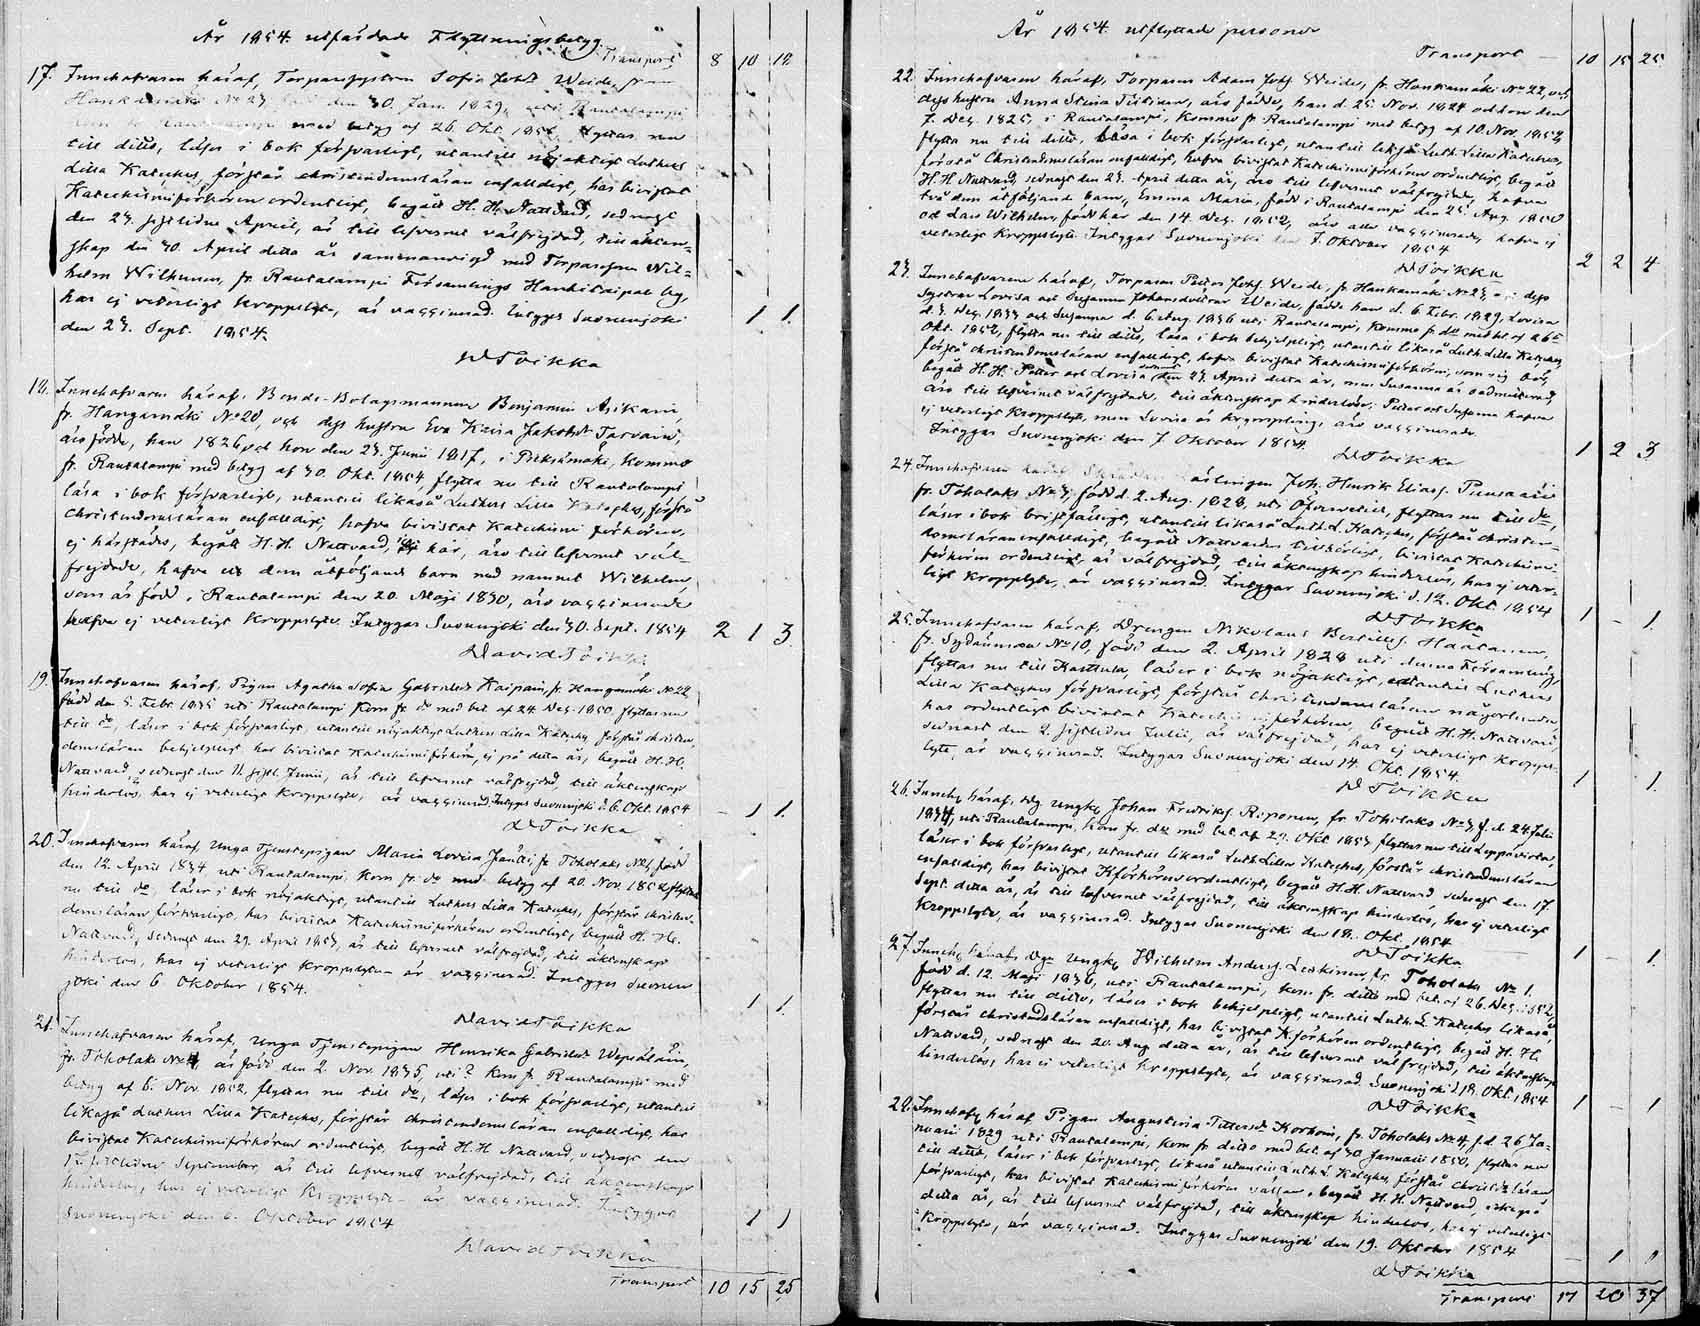 År 1854 utfärdade Flyttningsbetyg.
Transport 8 10 18
17. Innehafvaren häraf, Torparesystren Sofia Joh:dr Weide, från
Hankamäki No 23, den 30. Jan. 1829, uti Rautalampi
med betyg af 26. Okt. 1852, flyttas nu
till ditto, läser i bok försvarligt, utantill nöjaktigt Luthers
Lilla Kateches, förstår christendomsläran enfalldigt, har bivistat
Katechismiförhören ordentligt, begått H. H. Nattvard, sednast
den 23. sistlidne April, är till lefvernet välfrejdad, till äkten-
skap den 30. April detta år sammanvigd med Torparesonen Wil-
helm Wilhunen, fr. Rautalampi Församlings Hankitaipal by,
har ej veterligt kroppslyte, är vaccinerad. Intygas Suonenjoki 1 1.
den 23. Sept. 1854.
D Toikka
18. Innehafvaren häraf, Bonde-Bolagsmannen Benjamin Asikain,
fr. Hangamäki No 20, och dess hustru Eva Kaisa Jakobsdr Tarvain,
äro födde, han 1826 och hon den 23. Junii 1817, i Pieksämäki, kommo
fr. Rautalampi med betyg af 30. Okt. 1854, flytta nu till Rautalampi
läsa i bok försvarligt, utantill likaså Luthers Lilla Kateches, förstå
christendomsläran enfalldigt, hafva bivistat Katechismi förhören,
ej härstädes, begått H. H. Nattvard, ej här, äro till lefvernet väl-
frejdade, hafva ett dem åtföljande barn med namnet Wilhelm,
som är född i Rautalampi den 20. Maji 1850, äro vaccinerade
hafva ej veterligt kroppslyte. Intygas Suonenjoki den 30. Sept. 1854 2 1 3
David Toikka
19. Innehafvaren häraf, Pigan Agatha Sofia Gabrielsdr Kaipain, fr. Hangamäki No 22,
född den 5. Febr. 1835 uti Rautalampi kom fr. do med bet. af 24. Dec. 1850. flyttas nu
till do, läser i bok försvarligt, utantill nöjaktigt Luthers Lilla Kateches, förstår christen-
domsläran behjelpligt har bivistat Katechismiförhören, ej på detta år, begått H. H.
Nattvard, sednast den 11. sistl. Junii, är till lefvernet välfrejdad, till äktenskap
hinderlös, har ej veterligt kroppslyte, är vaccinerad, Intygas Suonenjoki d. 6. Okt. 1854 - 1 1.
D Toikka
20. Innehafvaren häraf, Unga Tjenstepigan Maria Lovisa Jäntti, fr. Toholaks No 1, född
den 12. April 1834 uti Rautalampi, kom fr. do med betyg af 20. Nov. 1852 flyttas
nu till do, läser i bok nöjaktigt, utantill Luthers Lilla Kateches, förstår christen-
domsläran försvarligt, har bivistat Katechismiförhören ordentligt, begått H. H.
Nattvard, sednast den 29. April 1853, är till lefvernet välfrejdad, till äktenskap
hinderlös, har ej veterligt kroppslyte - är vaccinerad. Intygas Suonen-
joki den 6. Oktober 1854. 1 1.
David Toikka
21. Innehafvaren häraf, Unga Tjenstepigan Henrika Gabrielsdr Wepsäläin,
fr. Toholaks No 4, är född den 2. Nov. 1835, uti? kom fr. Rautalampi med
betyg af 6. Nov. 1852, flyttas nu till do, läser i bok försvarligt, utantill
likaså Luthers Lilla Kateches, förstår christendomsläran enfalldigt, har
bivistat Katechismiförhören ordentligt, begått H. H. Nattvard, sednast den
17. sistlidne September, är till lefvernet välfrejdad, till äktenskap
hinderlös, har ej veterligt kroppslyte - är vaccinerad. Intygas
Suonenjoki den 6. Oktober 1854 1 1
David Toikka
Transport 10 15 25
År 1854 utflyttade personer
Transport - 10 15 25
22. Innehafvaren häraf, Torparen Adam Johs. Weide, fr. Hankamäki No 22, och
dess hustru Anna Stina Tiitinen, äro födde, han d. 25. Nov. 1824 och hon den
7. Dec. 1825, i Rautalampi, kommo fr. Rautalampi med betyg af 10. Nov. 1852,
flytta nu till ditto, läsa i bok försvarligt, utantill likaså Luth. Lilla Kateches,
förstå Christendomsläran enfalldigt, hafva bivistat Katechismiförhören ordentligt, begått
H. H. Nattvard, sednast den 23. April detta år, äro till lefvernet välfrejdade, hafva
två dem åtföljande barn, Emma Maria, född i Rautalampi den 25. Aug. 1850
och Lars Wilhelm, född här den 14. Dec. 1852, äro alla vaccinerade, hafva ej
veterligt kroppslyte. Intygas Suonenjoki den 7. Oktober 1854 2 2 4
D Toikka
23. Innehafvaren häraf, Torparen Petter Johs. Weide, fr. Hankamäki No 23, och dess
systrar Lovisa och Susanna Johansdöttrar Weide, födde han d. 6. Febr. 1829, Lovisa
d. 3. Dec. 1833 och Susanna d. 6. Aug. 1836 uti Rautalampi, kommo fr. do med bet. af 26
Okt. 1852, flytta nu till ditto, läsa i bok behjelpligt, utantill likaså Luth. Lilla Kateches,
förstå christendomsläran enfalldigt, hafva bivistat Katechismiförhören, som sig bör,
begått H. H. Petter och Lovisa sednast den 23. April detta år, men Susanna är oadmitterad,
äro till lefvernet välfrejdade, till äktenskap hinderlöse, Petter och Susanna hafva
ej veterligt kroppslyte, men Lovisa är krympling, äro vaccinerade.
Intygas Suonenjoki den 7. Oktober 1854. 1 2 3
D Toikka
24. Innehafvaren häraf ärlingen Joh. Henrik Eliass. Punsain
fr. Toholaks No 3, född d. 2. Aug. 1828, uti flyttas nu till do,
läser i bok bristfälligt, utantill likaså Luth. L. Kateches, förstår christen-
domsläran enfalldigt, begått Nattvarden tillbörligt, bivistat Katechismi-
förhören ordentligt, är välfrejdad, till äktenskap hinderlös, har ej veter-
ligt kroppslyte, är vaccinerad. Intygas Suonenjoki d. 12. Okt. 1854 1 - 1.
D Toikka
25. Innehafvaren häraf, Drengen Nikolaus Bertills. Haatainen,
fr. Sydänmaa No 10, född den 2. April 1828 uti denna Församling,
flyttas nu till Karttula, läser i bok nöjaktigt, utantill Luthers
Lilla Kateches försvarligt, förstår christendomsläran någorlunda
har ordentligt bivistat Katechismiförhören, begått H. H. Nattvard,
sednast den 2. sistlidne Julii, är välfrejdad, har ej veterligt kropps-
lyte, är vaccinerad. Intygas Suonenjoki den 14. Okt. 1854. 1 1.
D Toikka
26. Inneh. häraf, Ungk. Johan Fredriks. Riponen, fr. Toholaks No 3, f. d. 24. Julii
1834, uti Rautalampi, kom fr. do med bet. af 29. Okt. 1853 flyttas nu till Leppävirta,
läser i bok försvarligt, utantill likaså Luth. Lilla Kateches, förstår christendomsläran
enfalldigt, har bivistat K.förhören ordentligt, begått H. H. Nattvard, sednast den 17.
Sept. detta år, är till lefvernet välfrejdad, till äktenskap hinderlös, har ej veterligt
kroppslyte, är vaccinerad. Intygas Suonenjoki den 18. Okt. 1854 1 - 1.
D Toikka
27. Inneh. häraf, Ungk. Wilhelm Anders. Leskinen, fr. Toholaks No 1,
född d. 12. Maji 1836, uti Rautalampi, kom fr. ditto med bet. af 26. Dec. 1852,
flyttas nu till ditto, läser i bok behjelpligt, utantill Luth. L. Kateches likaså,
förstår christendsläran enfalldigt, har bivistat K.förhören ordentligt, begått H. H.
Nattvard, sednast den 20. Aug. detta år, är till lefvernet välfrejdad, till äktenskap
hinderlös, har ej veterligt kroppslyte, är vaccinerad. Suonenjoki d. 18. Okt. 1854 1 - 1
D Toikka
28. Innehafv. häraf Pigan Augustina Pettersdr Korhoin, fr. Toholaks No 4, f. d. 26. Ja-
nuarii 1829 uti Rautalampi, kom fr. ditto med bet. af 30. Januarii 1850, flyttas nu
till ditto, läser i bok försvarligt, likaså utantill Luth. L. Kateches, förstår christd. läran
försvarligt, har bivistat Katechismiförhören, begått H. H. Nattvard,
detta år, är till lefvernet välfrejdad, till äktenskap hinderlös, har ej veterligt
kroppslyte, är vaccinerad. Intygas Suonenjoki den 19. Oktober 1854 - 1 1
D Toikka
Transport 17 20 37